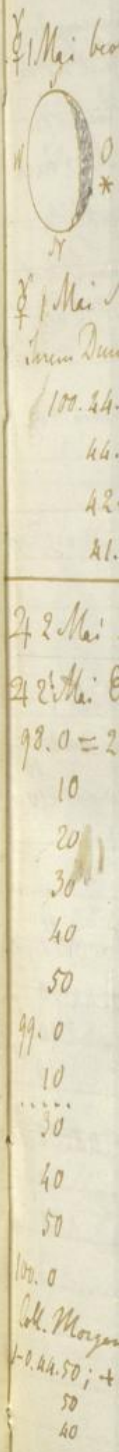 ☿ 1 Mai
W O
*
N
☿ 1 Mai
100.24.
44.
42.
41.
♃ 2 Mai
♃ 2 Mai
98.0 = 2
10
20
30
40
50
99.0
10
.....
30
40
50
100.0
Coll. Morgen
1-0.44.50; +
50
40